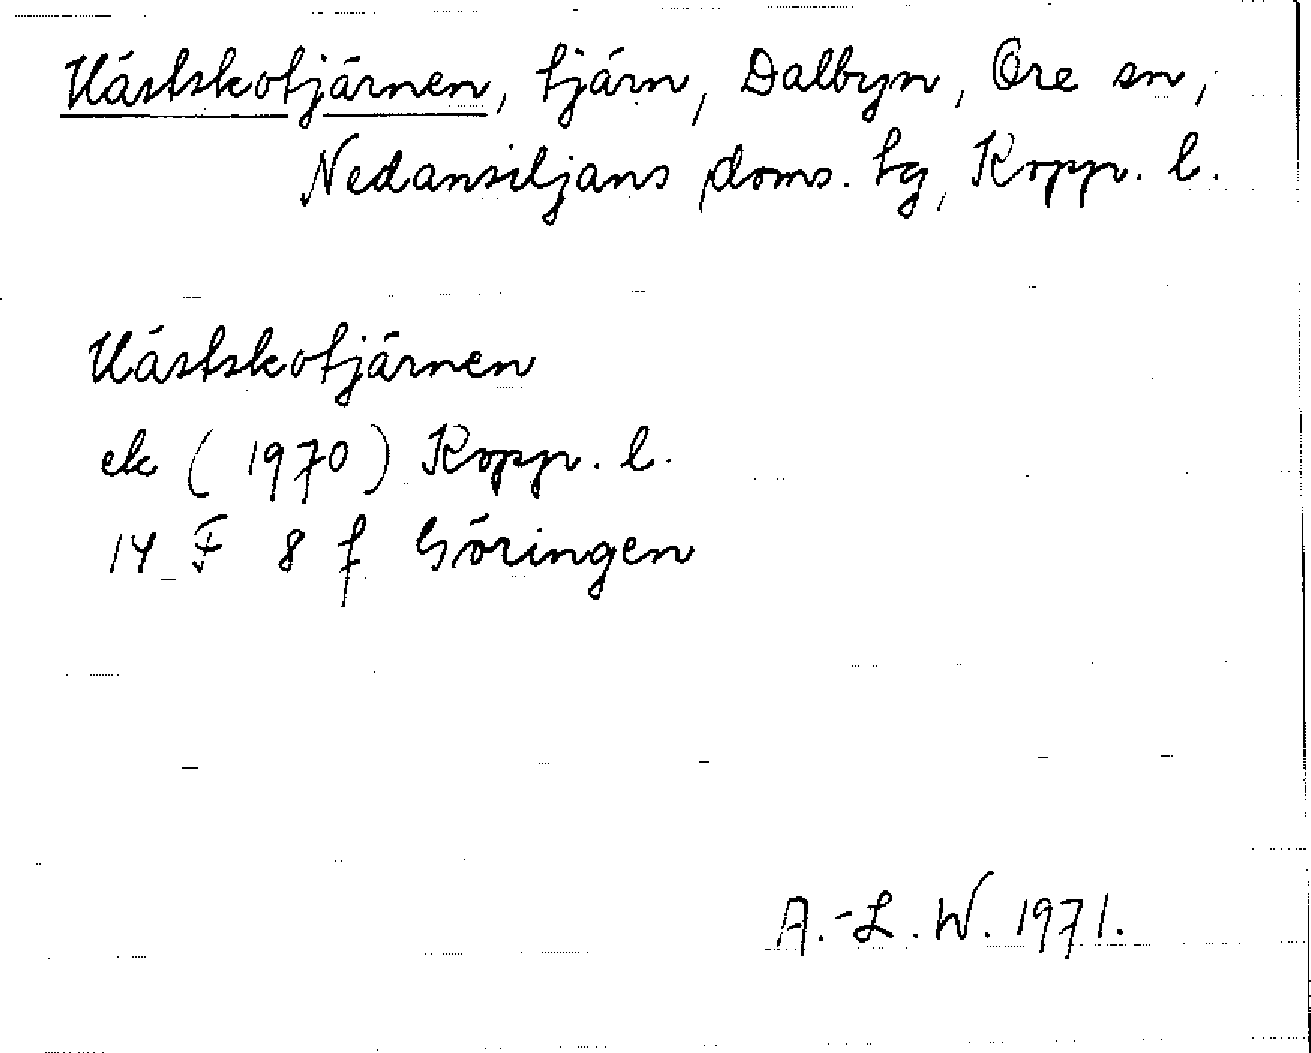 Hästskotjärnen, tjärn, Dalbyn, Ore sn,
Nedansiljans doms. tg, Kopp. l.
Hästskotjärnen
ek (1970) Kopp. l.
14 F 8 f Göringen
A.-L. W. 1971.